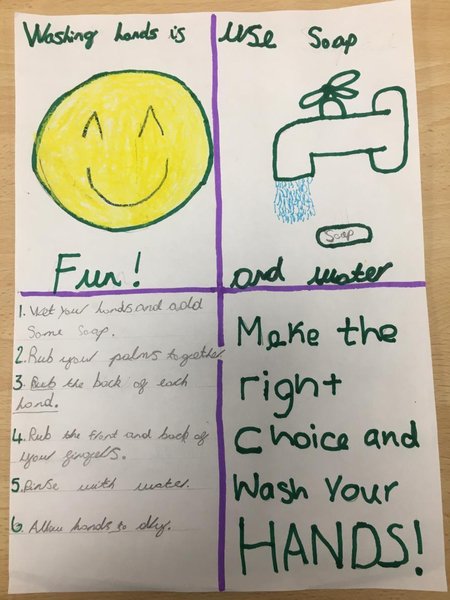 Washing hands is
Fun!
Use Soap
Soap
and water
1. Wet your hands and add
Some Soap.
2. Rub your palms together
3. Rub the back of each
hand.
4. Rub the front and back of
your fingers.
5. Rinse with water.
6. Allow hands to dry.
Make the
right
Choice and
Wash Your
HANDS!